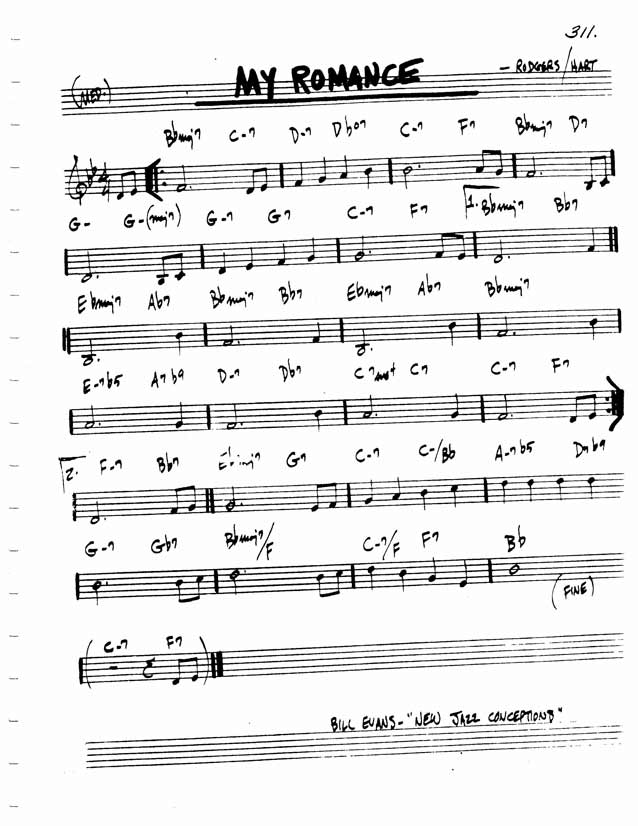 311.
MY ROMANCE
– RODGERS/HART
(MED.)
Bbmaj7 C-7 D-7 Dbo7 C-7 F7 Bbmaj7 D7
G- G-(maj7) G-7 G7 C-7 F7 1. Bbmaj7 Bb7
Ebmaj7 Ab7 Bbmaj7 Bb7 Ebmaj7 Ab7 Bbmaj7
E-7b5 A7b9 D-7 Db7 C7sus4 C7 C-7 F7
2. F-7 Bb7 Ebmaj7 G7 C-7 C-/Bb A-7b5 D7b9
G-7 Gb7 Bbmaj7/F C-7/F F7 Bb
(FINE)
(C-7 F7)
BILL EVANS – "NEW JAZZ CONCEPTIONS"